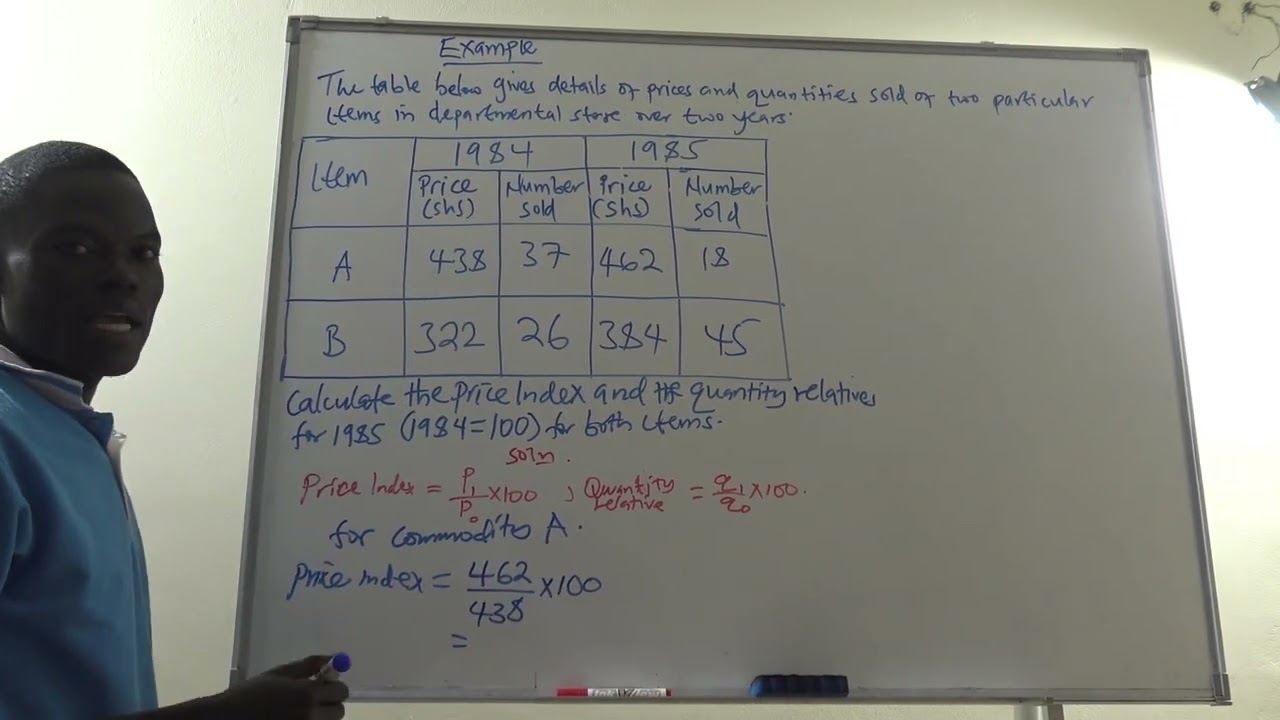 Example
The table below gives details of prices and quantities sold of two particular
Items in departmental store over two years.
Item 1984 1985
Price (shs) Number sold Price (shs) Number sold
A 438 37 462 18
B 322 26 384 45
Calculate the Price Index and the quantity relatives
for 1985 (1984=100) for both Items.
soln.
Price Index = P₁/P₀ ×100 , Quantity relative = q₁/q₀ ×100.
for commodity A.
Price index = 462/438 ×100
=